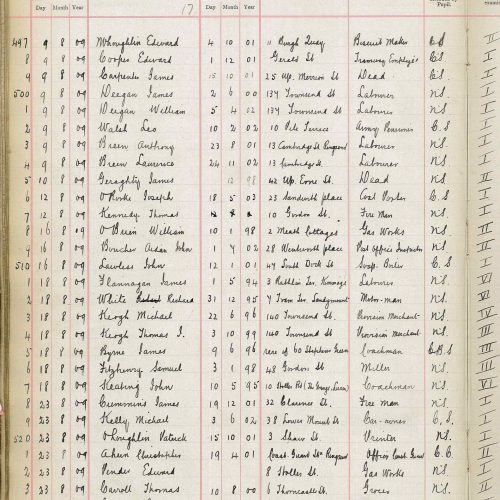 Day Month Year 17 Day Month Year Pupil
497 9 8 09 McLoughlin Edward 4 10 01 11 Burgh Quay Biscuit Maker C.S.
8 9 8 09 Cooper Edward 1 12 01 Gerald St Tramway Employé C.S.
9 9 8 09 Carpenter James 15 10 01 25 Up. Merrion St Dead C.S.
500 9 8 09 Deegan James 2 6 00 137 Townsend St Labourer N.S.
1 9 8 09 Deegan William 5 4 02 137 Townsend St Labourer N.S.
2 9 8 09 Walsh Leo 10 2 02 10 Pile Terrace Army Pensioner C.S.
3 9 8 09 Breen Anthony 23 8 01 13 Cambridge St Ringsend Labourer N.S.
4 9 8 09 Breen Laurence 24 11 02 13 Cambridge St Labourer N.S.
5 10 8 09 Geraghty James 12 98 42 Up. Erne St. Dead N.S.
6 12 8 09 O'Rorke Joseph 18 5 03 23 Sandwith place Coal Porter C.S.
7 12 8 09 Kennedy Thomas 10 Gordon St. Fire Man N.S.
8 16 8 09 O'Brien William 10 1 98 2 Cottages Gas Works N.S.
9 16 8 09 Boucher Aidan John 1 7 02 28 Wentworth place Post Office Instructor N.S.
510 16 8 09 Lawless John 12 1 01 47 South Dock St Insp. Boiler C.S.
1 18 8 09 Flannagan James 1 5 94 3 Ter. Labourer N.S.
2 18 8 09 White Richard 31 12 95 7 Tram Ter. Sandymount Motor-man N.S.
3 18 8 09 Keogh Michael 22 6 96 140 Townsend St. Provision Merchant N.S.
4 18 8 09 Keogh Thomas J. 3 10 99 140 Townsend St Provision Merchant N.S.
5 18 8 09 Byrne James 9 6 96 rare of 60 Stephens Green Coachman C.B.S
6 18 8 09 Fitzhenry Samuel 3 1 98 48 Gordon St Miller N.S.
7 18 8 09 Keating John 10 5 95 10 Coachman N.S.
8 23 8 09 Cremmins James 19 12 01 32 Clarence St. Fire Man N.S.
9 23 8 09 Kelly Michael 3 6 02 38 Lower Mount St Car-owner C.S.
520 23 8 09 O'Loughlin Patrick 15 10 01 3 Shaw St. Vintner N.S.
1 23 8 09 Ahern Christopher 19 4 01 Coast Guard Stn Ringsend Officer Coast Guard C.C.
2 23 8 09 Pender Edward 8 St. Gas Works N.S.
3 23 8 09 Carroll Thomas 10 8 00 6 Thorncastle St. Grocer N.S.